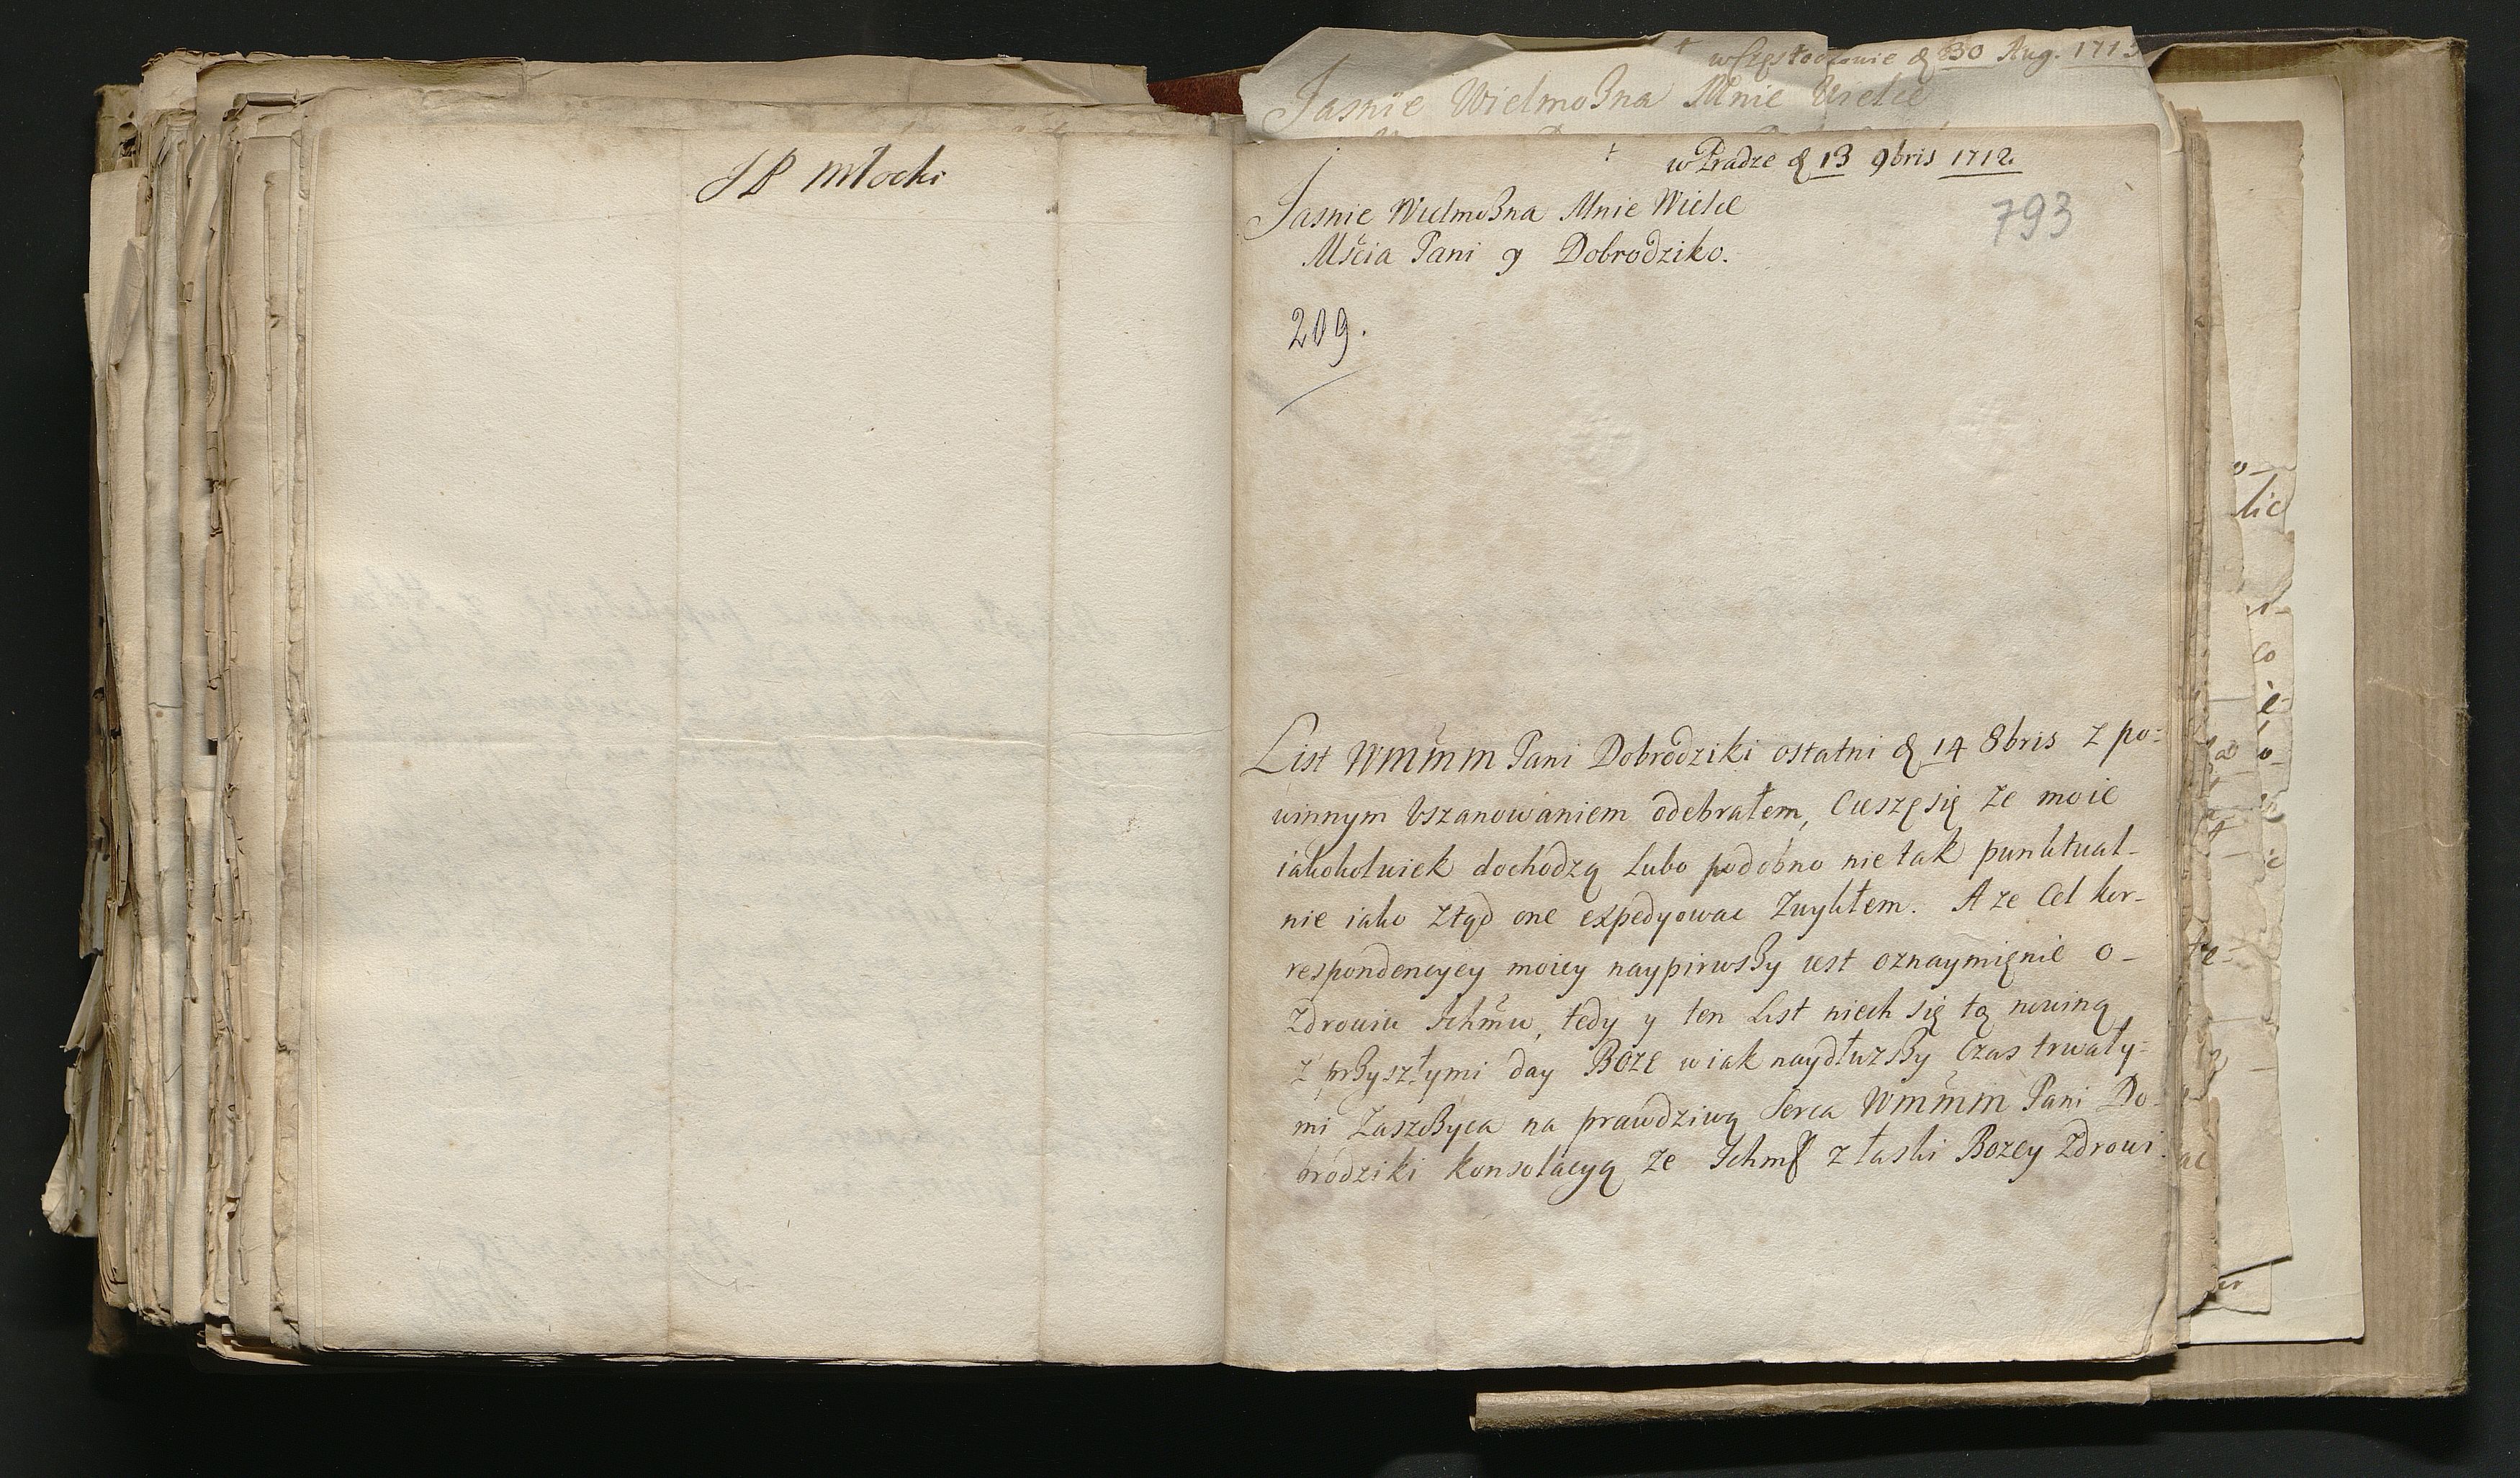 JP Młocki
w Częstochowie d 30 Aug. 1713
Jasnie Wielmozna Mnie Wielce
w Pradze d 13 9bris 1712.
793
Jasnie Wielmozna Mnie Wielce
Mścia Pani y Dobrodziko.
209.
List WMMM Pani Dobrodziki ostatni d 14 8bris z po:
winnym Uszanowaniem odebrałem, Cieszę się ze moie
iakokolwiek dochodzą Lubo podobno nie tak punktual-
nie iako ztąd one expedyowac Zwykłem. A ze Cel kor-
respondencyey moiey naypirwszy iest oznaymięnie o-
Zdrowiu Ichmu, tedy y ten List niech się tą nowiną
z przyszłymi day BOZE w iak naydłuzszy Czas trwały-
mi Zaszczyca na prawdziwą Serca WMMM Pani Do-
brodziki Konsolacyą Ze Ichm z łaski Bozey Zdrowi.